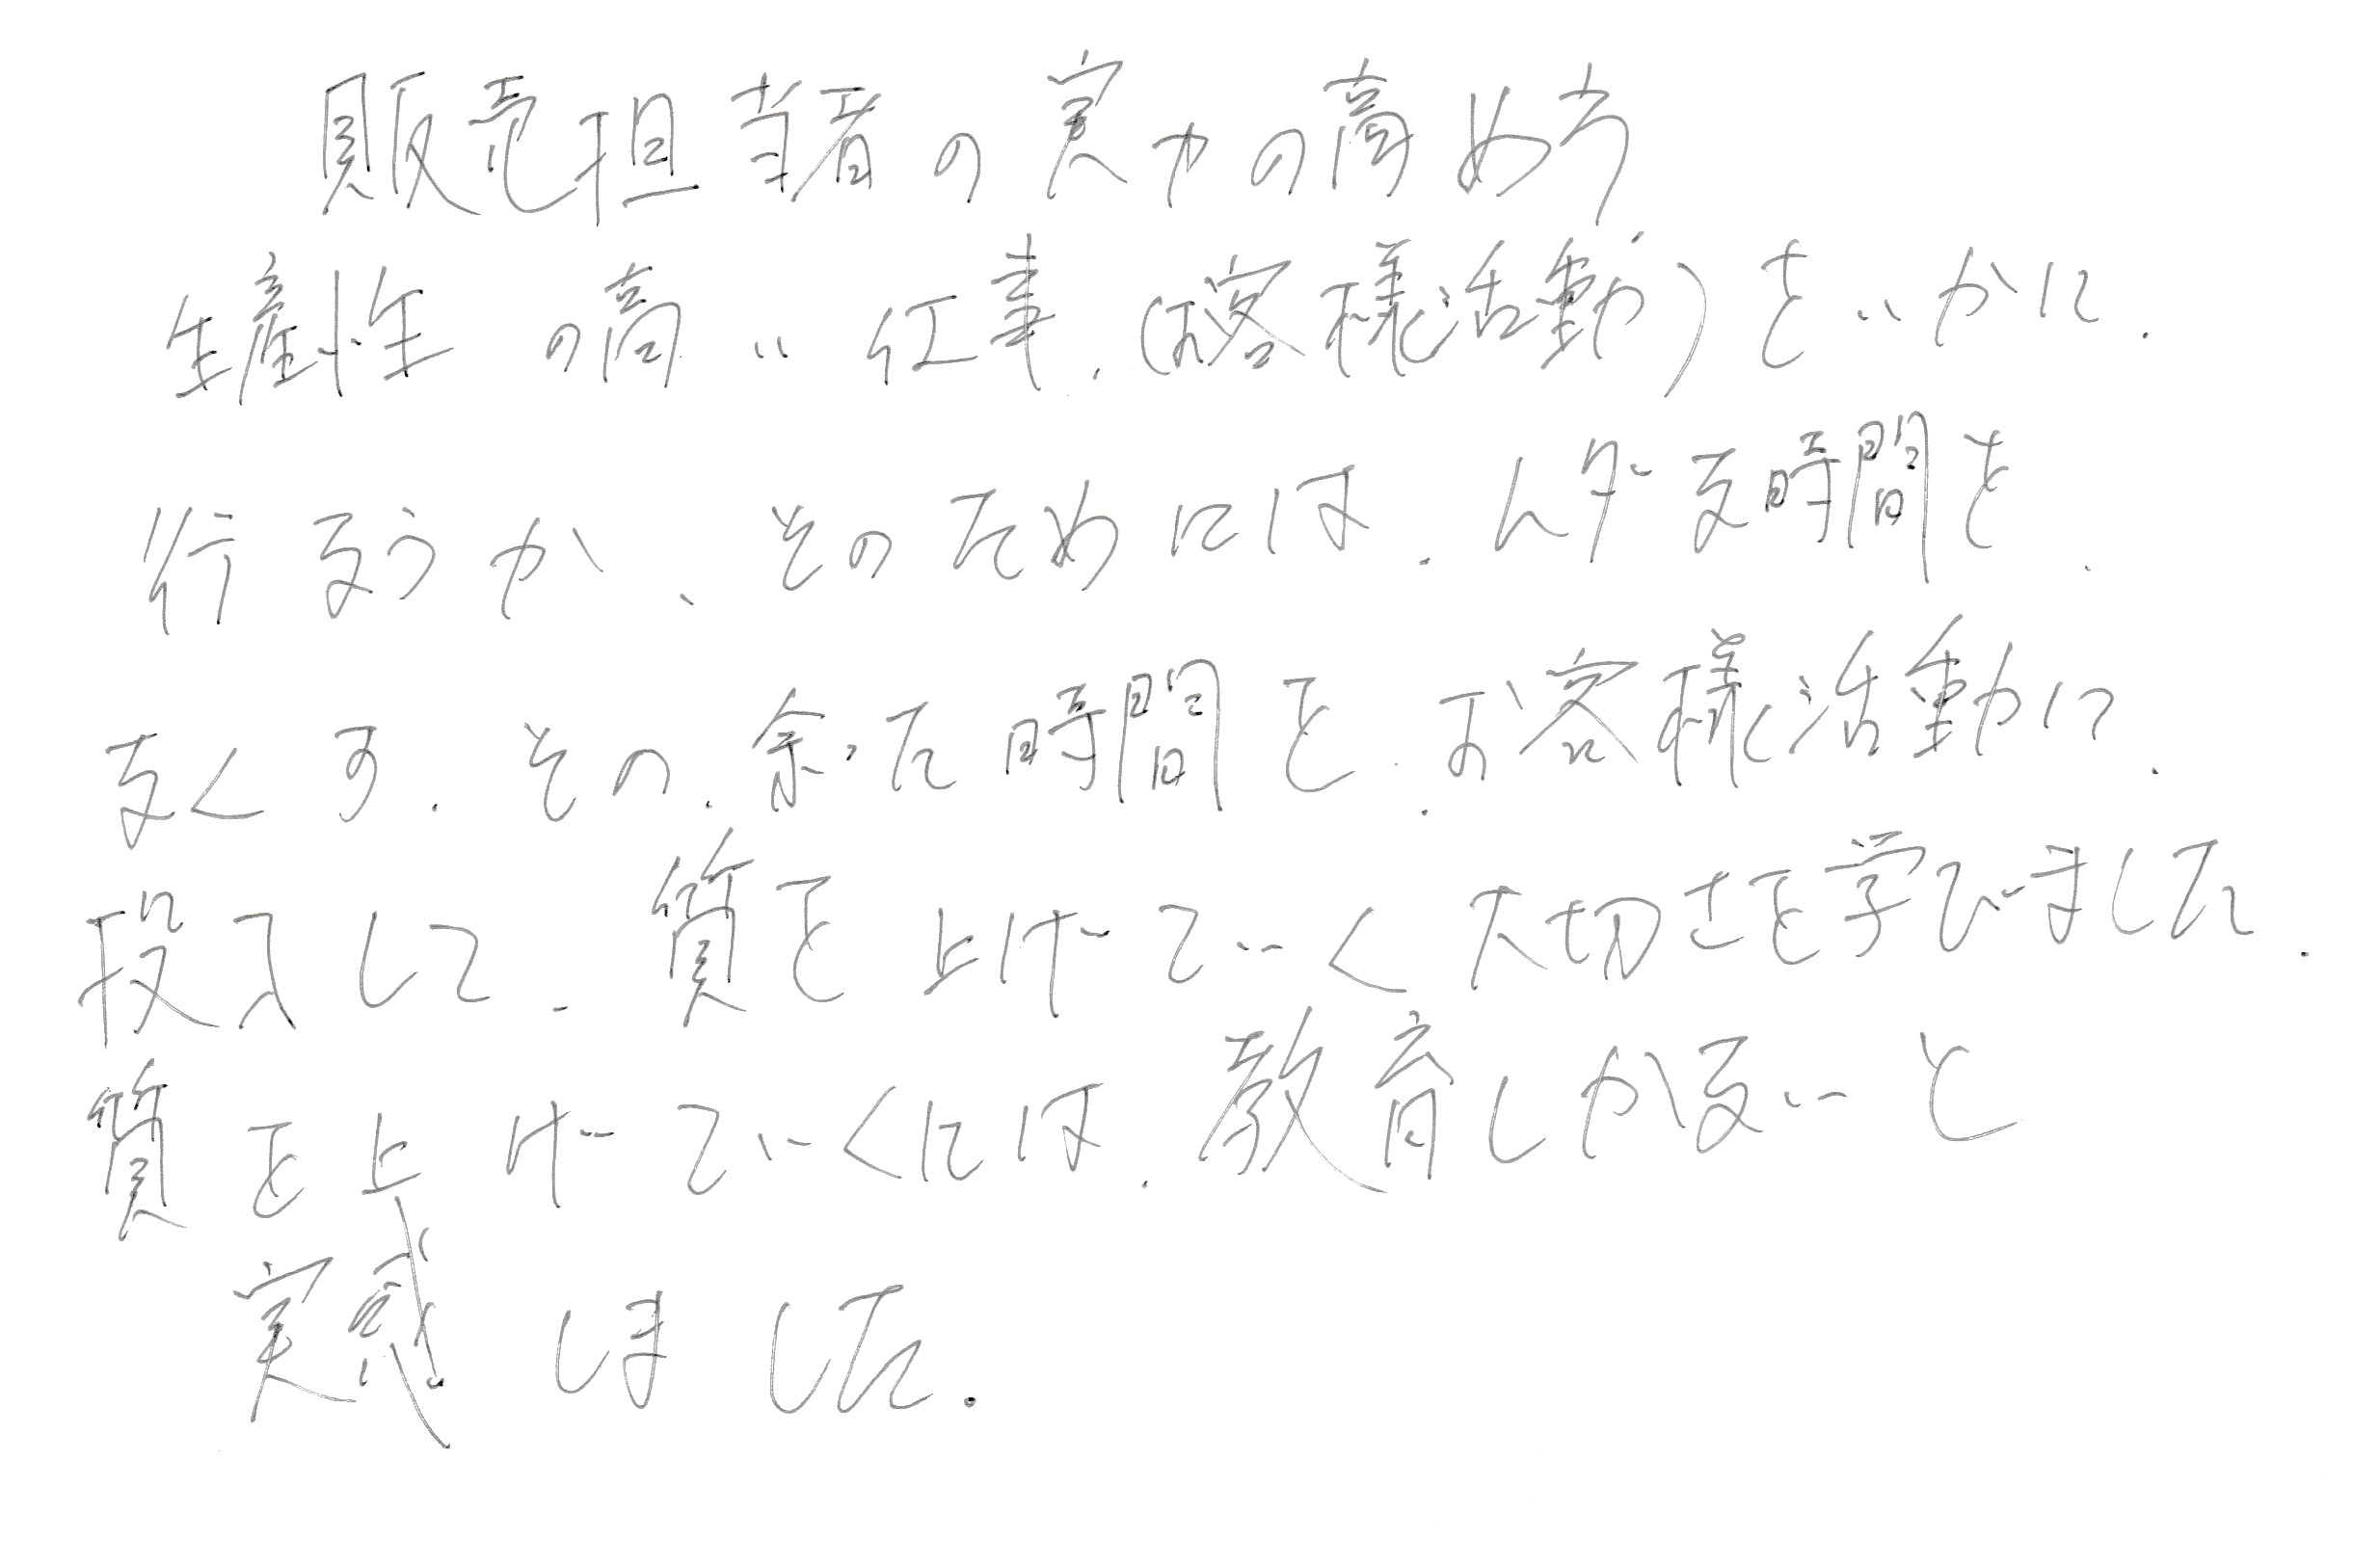 販売担当者の実力の高め方
生産性の高い仕事.(お客様活動)をいかに.
行なうか、そのためには.ムダな時間を.
なくす.その.余った時間を.お客様活動に.
投入して.質を上げていく大切さを学びました.
質を上げていくには.教育しかないと
実感しました.